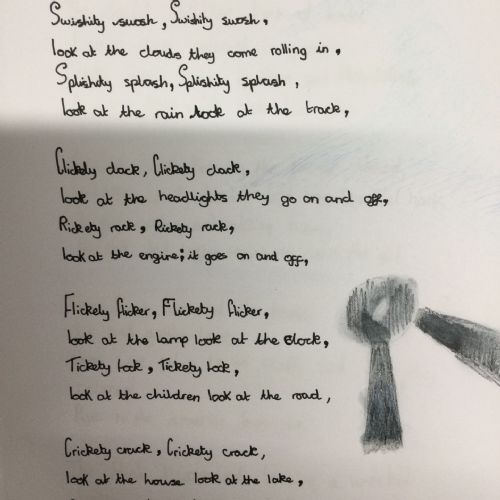 Swishity swosh, Swishity swosh,
look at the clouds they come rolling in,
Splishity splash, Splishity splash,
look at the rain look at the track,
Clickety clack, Clickety clack,
look at the headlights they go on and off,
Rickety rack, Rickety rack,
look at the engine; it goes on and off,
Flickety flicker, Flickety flicker,
look at the lamp look at the clock,
Tickety tock, Tickety tock,
look at the children look at the road,
Crickety crack, Crickety crack,
look at the house look at the lake,